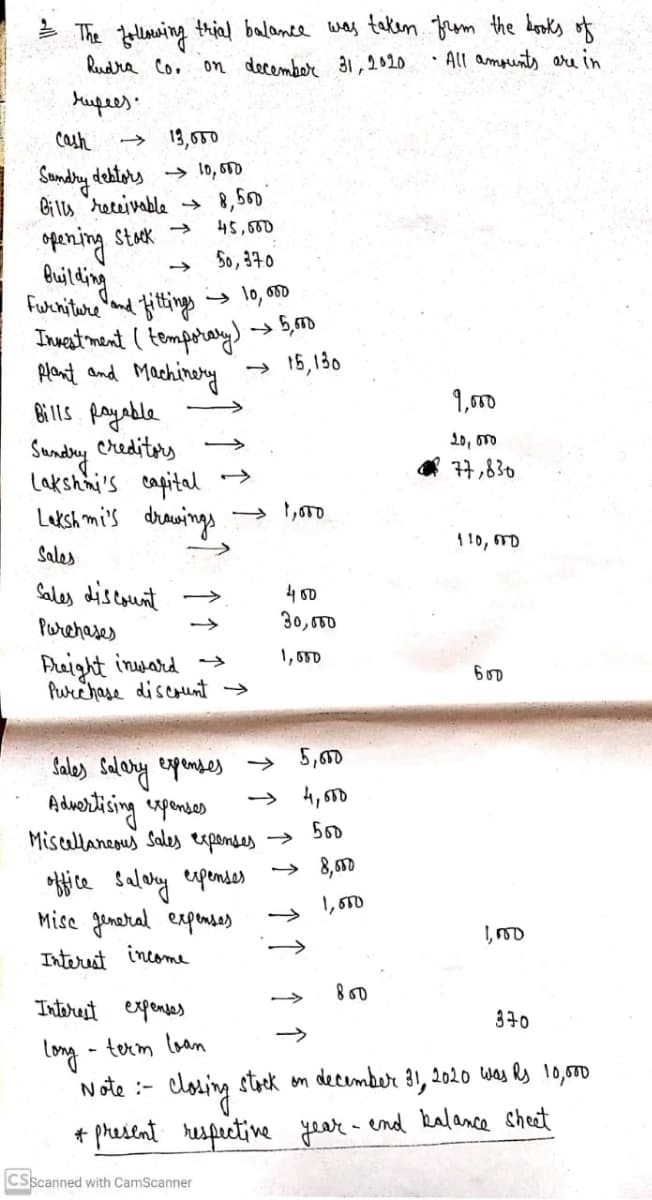 2 The following trial balance was taken from the books of
Rudra Co. on december 31, 2020 . All amounts are in
rupees.
Cash → 13,000
Sundry debtors → 10,000
Bills receivable → 8,500
opening stock → 45,000
Building → 50,370
Furniture and fittings → 10,000
Investment (temporary) → 5,000
Plant and Machinery → 15,130
Bills payable → 9,000
Sundry creditors → 20,000
Lakshmi's capital → 77,830
Lakshmi's drawings → 1,000
Sales → 110,000
Sales discount → 400
Purchases → 30,000
Freight inward → 1,000
Purchase discount → 500
Sales Salary expenses → 5,000
Advertising expenses → 4,000
Miscellaneous Sales expenses → 500
office Salary expenses → 8,000
Misc general expenses → 1,000
Interest income → 1,000
Interest expenses → 800
long - term loan → 370
Note :- closing stock on december 31, 2020 was Rs 10,000
* present respective year - end balance sheet
CS Scanned with CamScanner